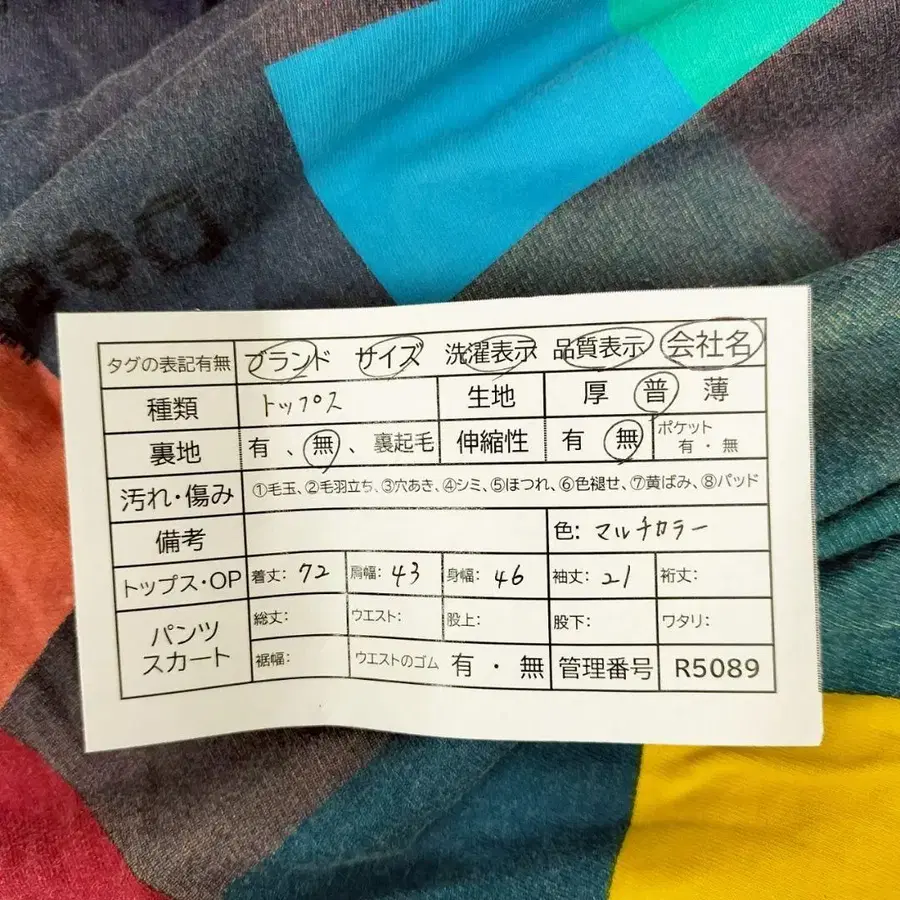 タグの表記有無 ブランド サイズ 洗濯表示 品質表示 会社名
種類 トップス 生地 厚 普 薄
裏地 有 、無 、裏起毛 伸縮性 有 無 ポケット 有・無
汚れ・傷み ①毛玉、②毛羽立ち、③穴あき、④シミ、⑤ほつれ、⑥色褪せ、⑦黄ばみ、⑧パッド
備考 色: マルチカラー
トップス・OP 着丈: 72 肩幅: 43 身幅: 46 袖丈: 21 裄丈:
パンツ
スカート
総丈: ウエスト: 股上: 股下: ワタリ:
裾幅: ウエストのゴム 有・無 管理番号 R5089